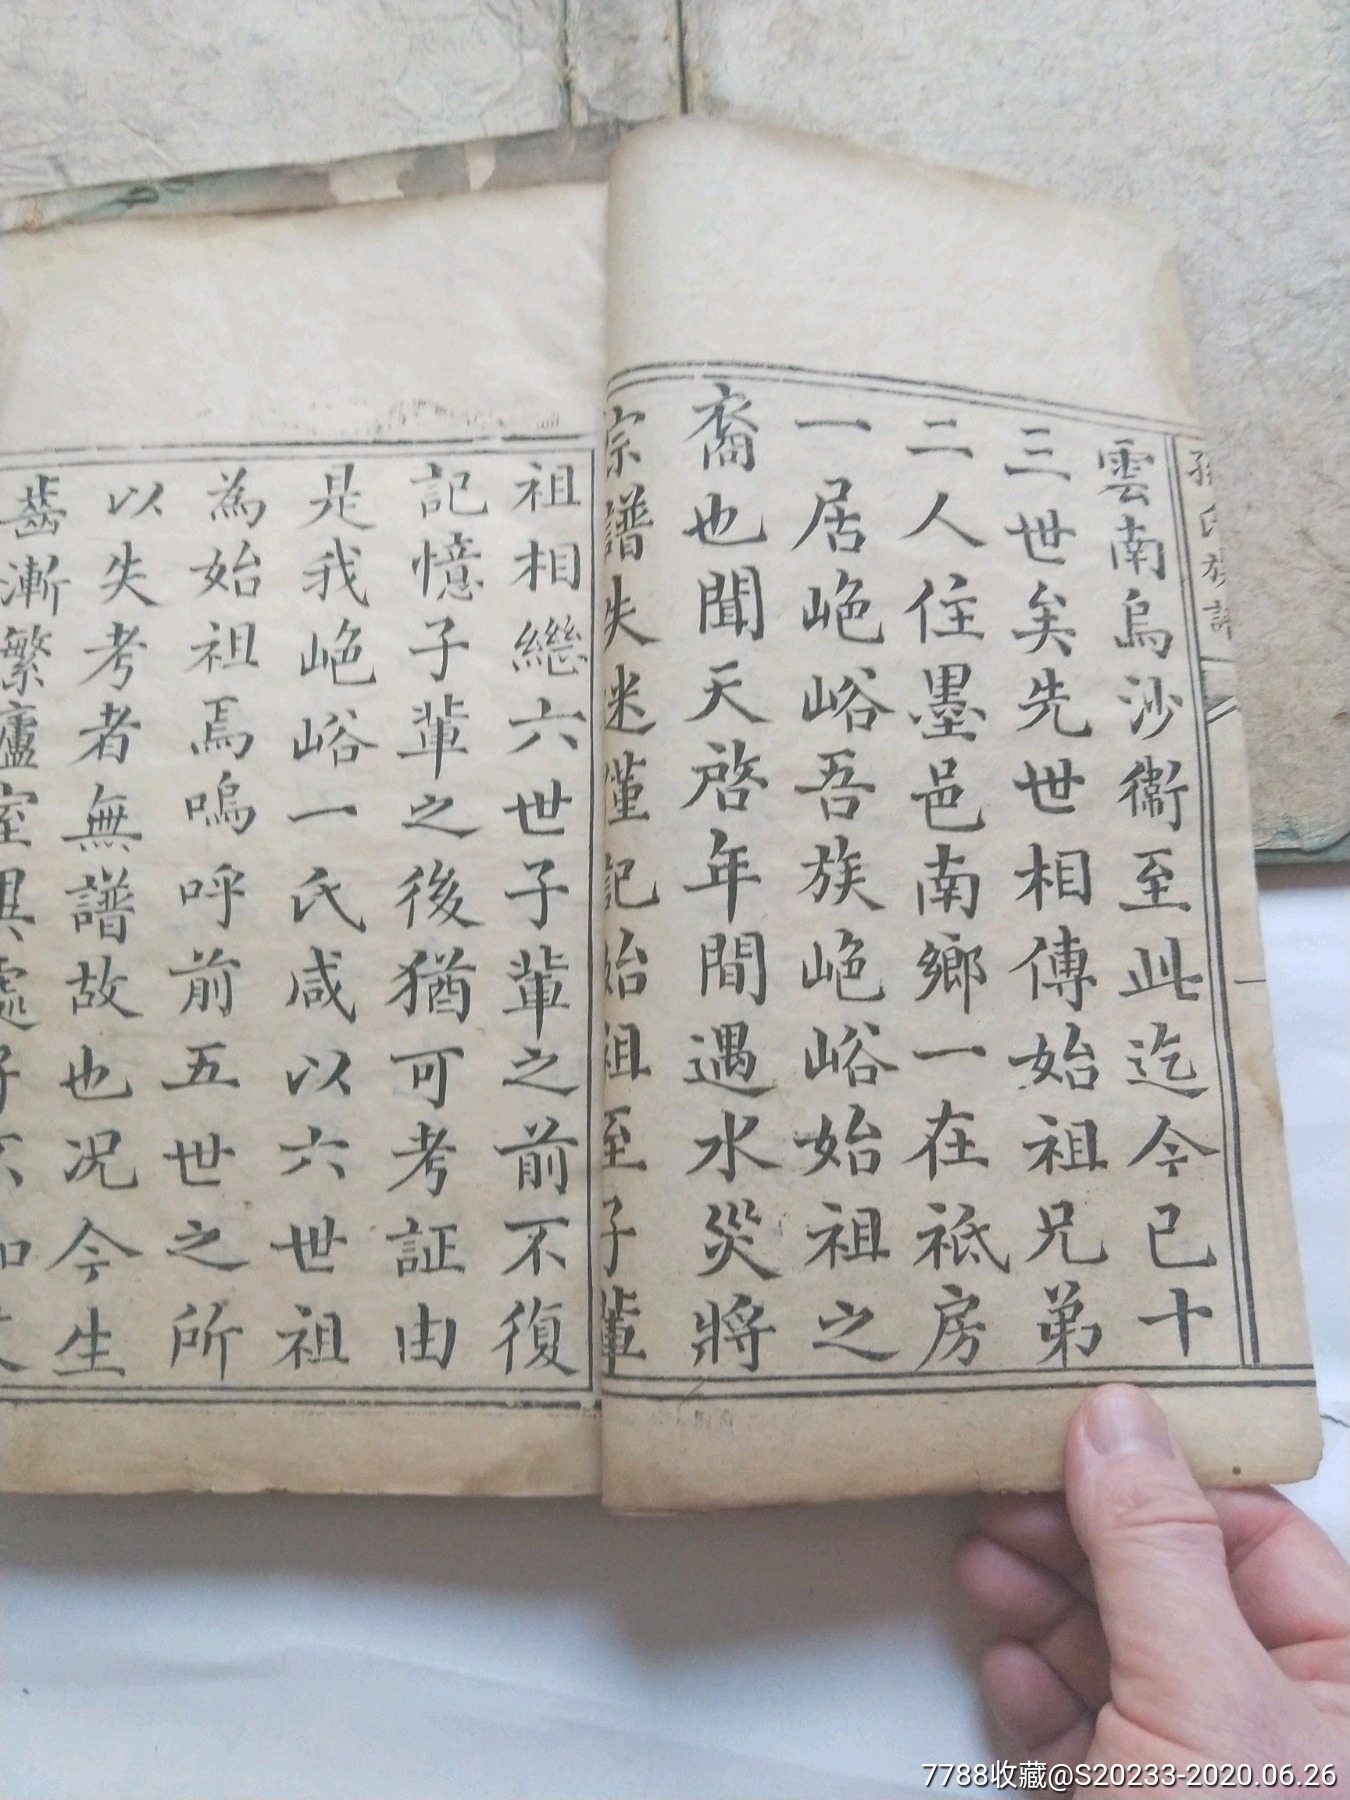 孫氏族譜
一
雲南烏沙衞至此迄今已十
三世矣先世相傳始祖兄弟
二人住墨邑南鄉一在袛房
一居峞峪吾族峞峪始祖之
裔也聞天啓年間遇水災將
宗譜失迷僅記始祖至子輩
祖相繼六世子輩之前不復
記憶子輩之後猶可考証由
是我峞峪一氏咸以六世祖
為始祖焉嗚呼前五世之所
以失考者無譜故也况今生
齒漸繁廬室
7788收藏@S20233-2020.06.26